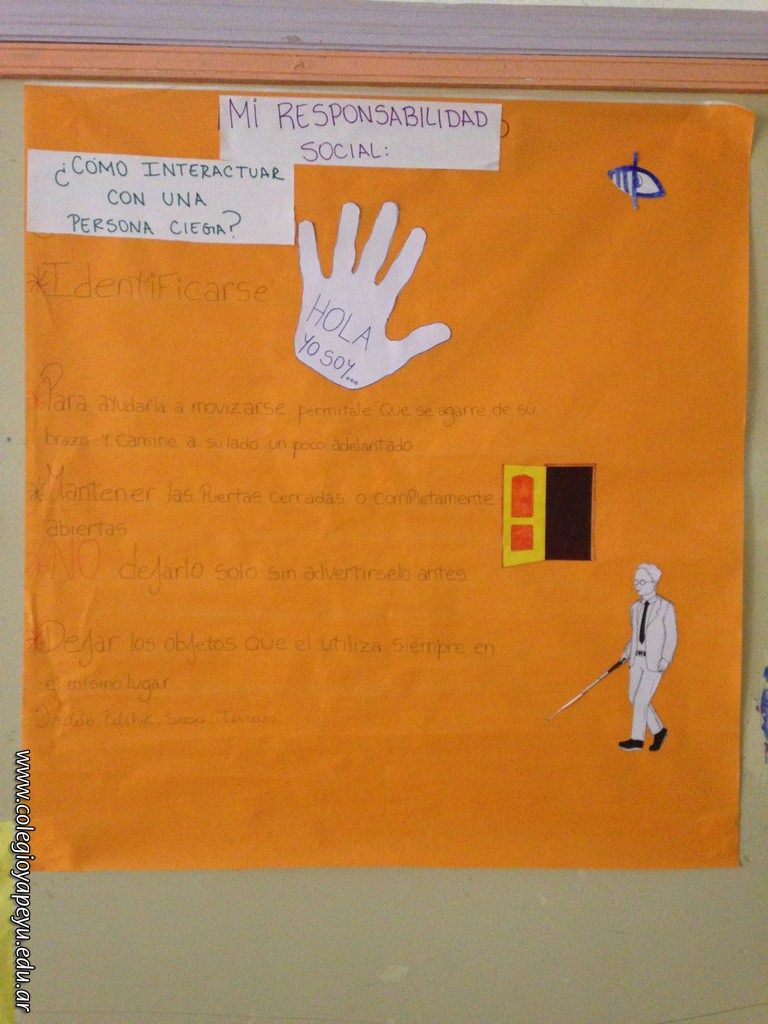 MI RESPONSABILIDAD
SOCIAL:
¿CÓMO INTERACTUAR
CON UNA
PERSONA CIEGA?
*Identificarse
HOLA
YO SOY...
*Para ayudarla a movizarse permitale que se agarre de su
brazo y camine a su lado un poco adelantado
*Mantener las Puertas cerradas o completamente
abiertas
*NO dejarlo solo sin advertirselo antes
*Dejar los objetos que el utiliza siempre en
el mismo lugar
www.colegioyapeyu.edu.ar